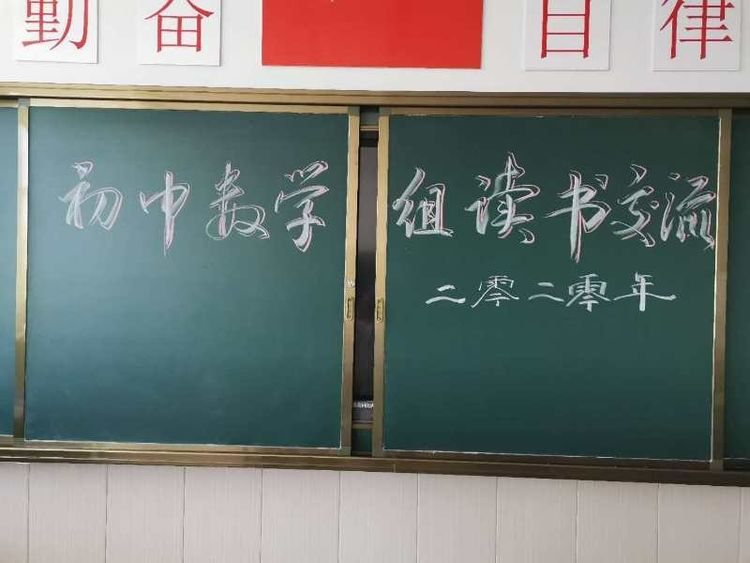 勤奋 自律
初中数学组读书交流
二零二零年